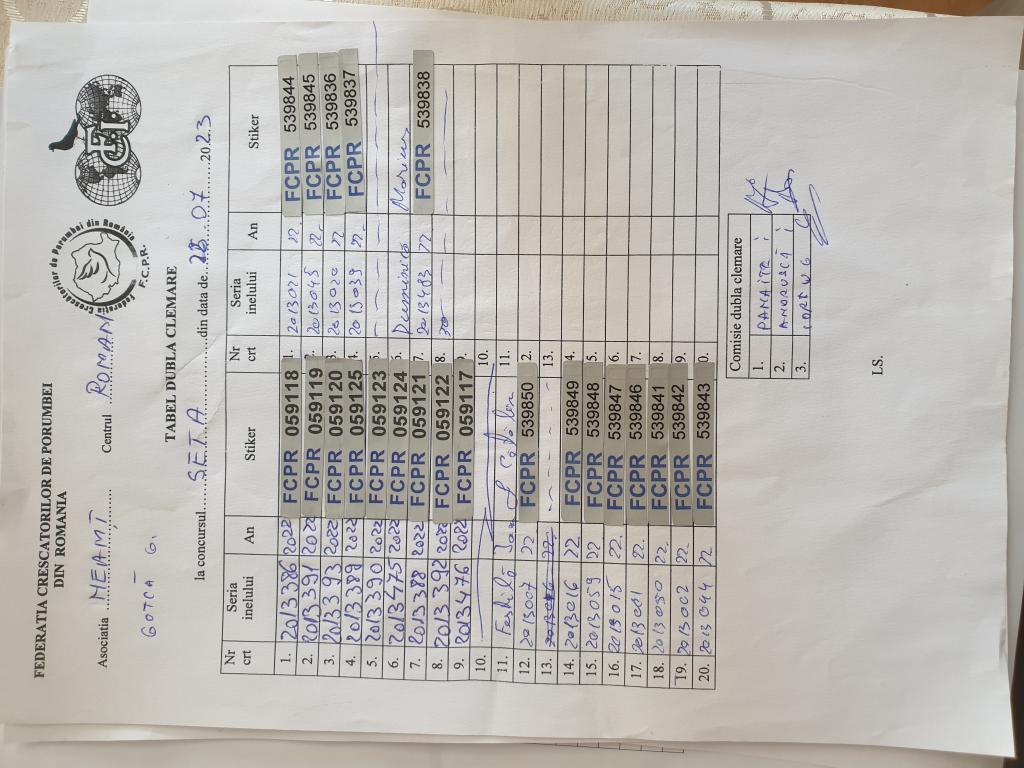 FEDERATIA CRESCATORILOR DE PORUMBEI
DIN ROMANIA
Federatia Crescătorilor de Porumbei din România
F.C.P.R.
Asociatia NEAMȚ Centrul ROMAN
GOTCĂ G.
TABEL DUBLA CLEMARE
la concursul SETA din data de 07 2023
Nr crt Seria inelului An Stiker Nr crt Seria inelului An Stiker
1. 2013386 2022 FCPR 059118 1. 2013021 22 FCPR 539844
2. 2013391 2022 FCPR 059119 2. 2013045 22 FCPR 539845
3. 2013393 2022 FCPR 059120 3. 2013020 22 FCPR 539836
4. 2013389 2022 FCPR 059125 4. 2013039 22 FCPR 539837
5. 2013390 2022 FCPR 059123 5.
6. 2013475 2022 FCPR 059124 6. Duminica Marius
7. 2013388 2022 FCPR 059121 7. 2013483 22 FCPR 539838
8. 2013392 2022 FCPR 059122 8.
9. 2013476 2022 FCPR 059117 9.
10. 10.
11. 11.
12. 2013007 22 FCPR 539850 2.
13. 13.
14. 2013016 22 FCPR 539849 4.
15. 2013059 22 FCPR 539848 5.
16. 2013015 22. FCPR 539847 6.
17. 2013011 22. FCPR 539846 7.
18. 2013050 22. FCPR 539841 8.
19. 2013002 22. FCPR 539842 9.
20. 2013044 22 FCPR 539843 0.
Comisie dubla clemare
1.
2.
3.
LS.